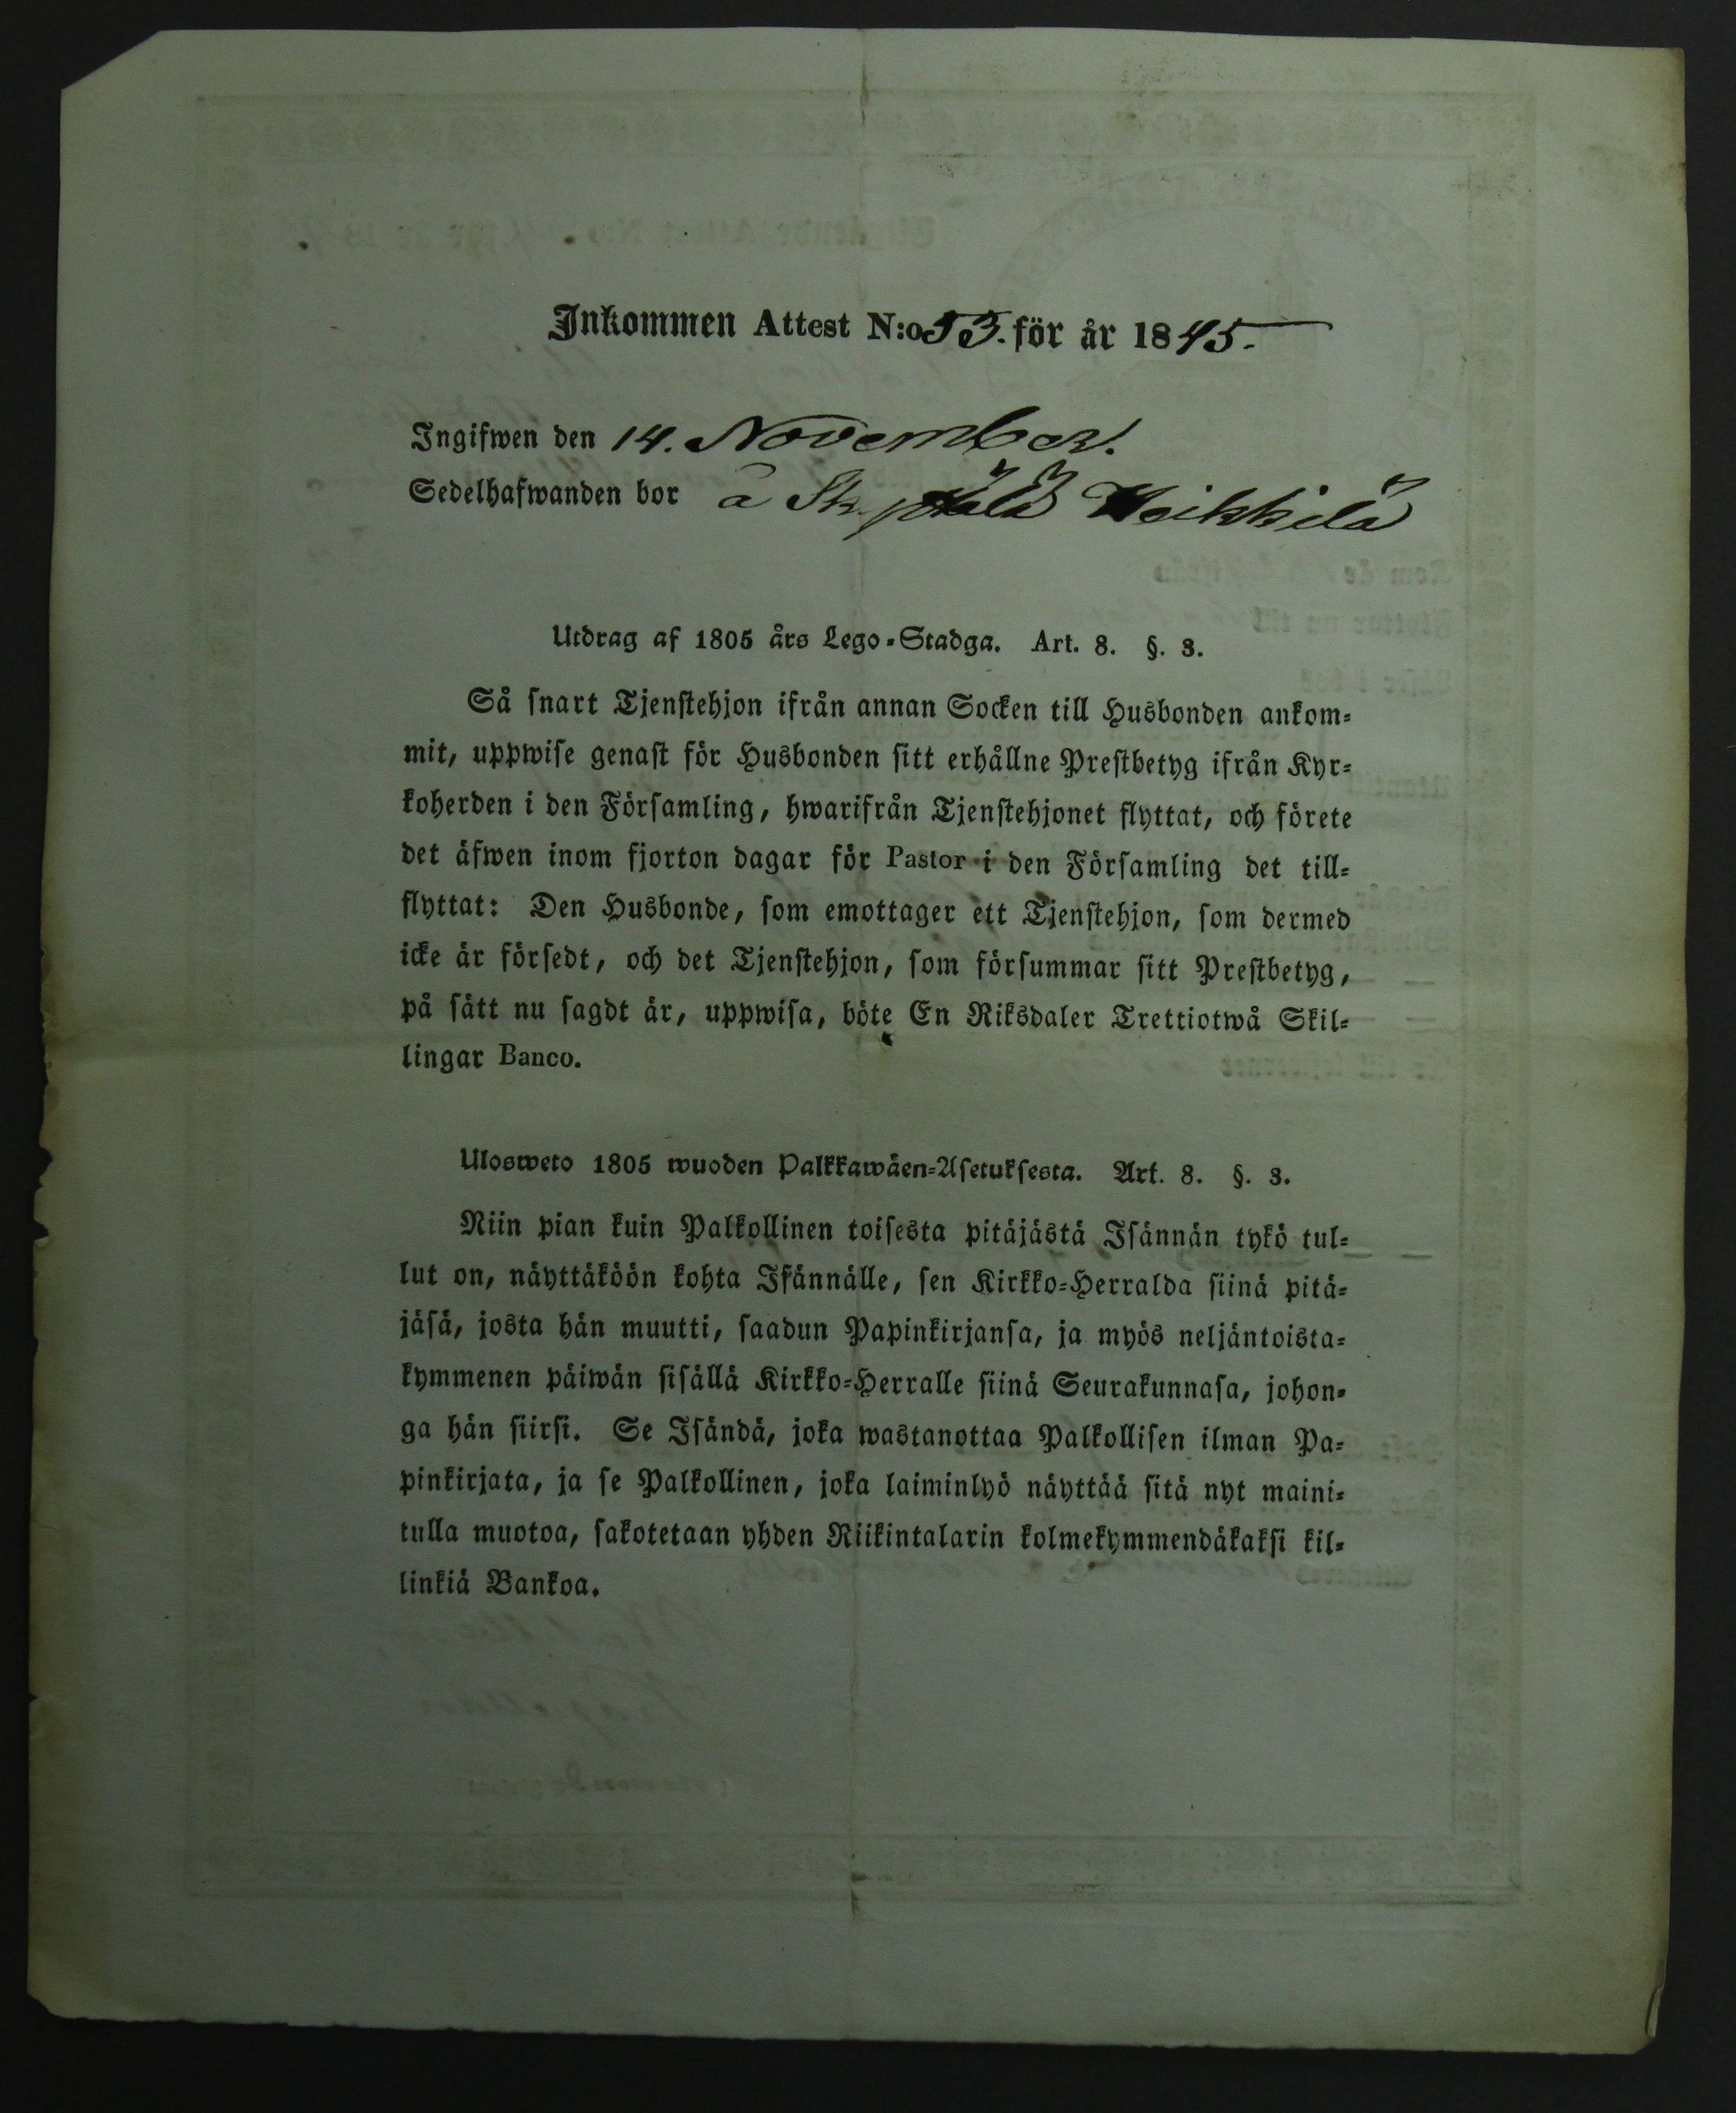 Inkommen Attest N:o 53. för år 1845.
Ingifwen den 14. November.
Sedelhafwanden bor å Heikkilä
Utdrag af 1805 års Lego-Stadga. Art. 8. §. 3.
Så snart Tjenstehjon ifrån annan Socken till Husbonden ankom-
mit, uppwise genast för Husbonden sitt erhållne Prestbetyg ifrån Kyr-
koherden i den Församling, hwarifrån Tjenstehjonet flyttat, och förete
det äfwen inom fjorton dagar för Pastor i den Församling det till-
flyttat: Den Husbonde, som emottager ett Tjenstehjon, som dermed
icke är försedt, och det Tjenstehjon, som försummar sitt Prestbetyg,
på sätt nu sagdt är, uppwisa, böte En Riksdaler Trettiotwå Skil-
lingar Banco.
Ulosweto 1805 wuoden Palkkawäen-Asetuksesta. Art. 8. §. 3.
Niin pian kuin Palkollinen toisesta pitäjästä Isännän tykö tul-
lut on, näyttäköön kohta Isännälle, sen Kirkko-Herralda siinä pitä-
jäsä, josta hän muutti, saadun Papinkirjansa, ja myös neljäntoista-
kymmenen päiwän sisällä Kirkko-Herralle siinä Seurakunnasa, johon-
ga hän siirsi. Se Isändä, joka wastanottaa Palkollisen ilman Pa-
pinkirjata, ja se Palkollinen, joka laiminlyö näyttää sitä nyt maini-
tulla muotoa, sakotetaan yhden Riikintalarin kolmekymmendäkaksi kil-
linkiä Bankoa.